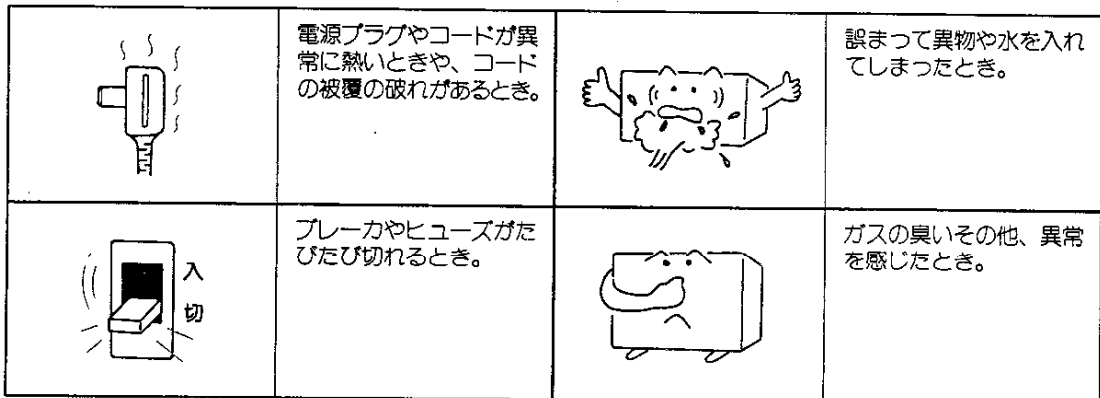 電源プラグやコードが異
常に熱いときや、コード
の被覆の破れがあるとき。
誤まって異物や水を入れ
てしまったとき。
入
切
ブレーカやヒューズがた
びたび切れるとき。
ガスの臭いその他、異常
を感じたとき。